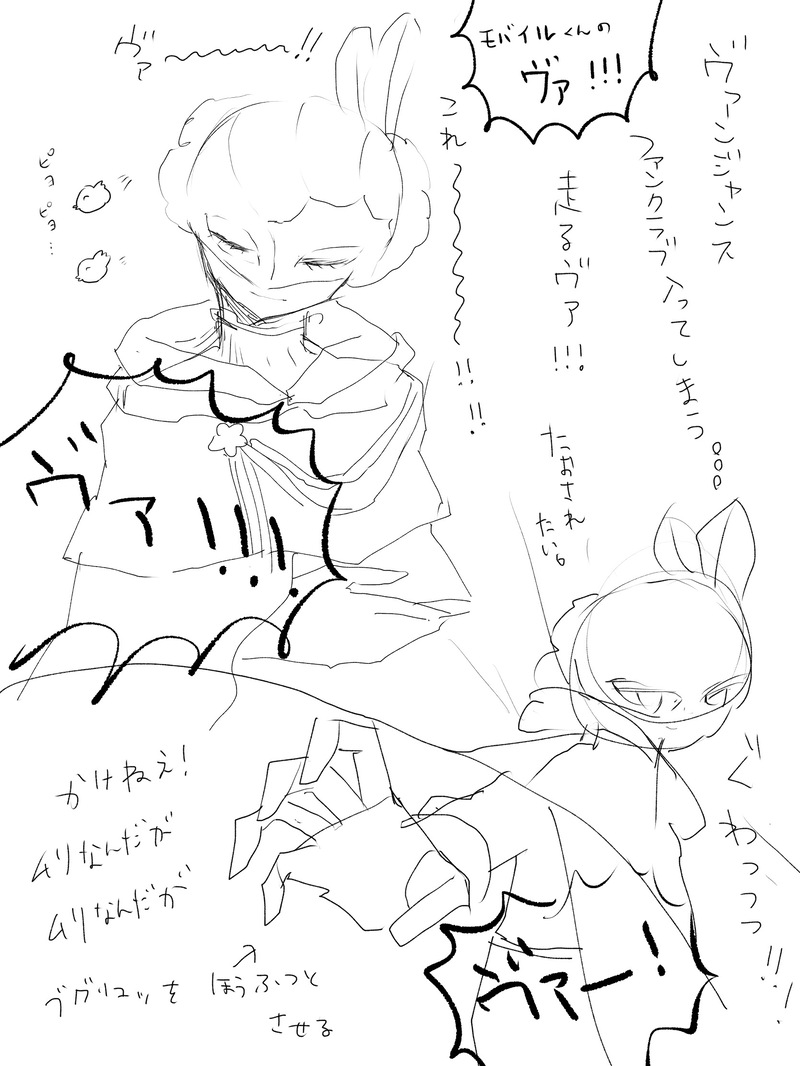 ヴァンジャンス
ファンクラブ入ってしまう。。。
モバイルくんの
ヴァ!!!
走るヴァ!!!。
たおされ
たい。
これ〜〜〜〜!!!!
ヴァ〜〜〜!!
ピヨ
ピヨ…
ヴァ!!!
ぐわっっっ!!!
ヴァー!
かけねぇ!
ムリなんだが
ムリなんだが
ブグリュッを ほうふつと
させる